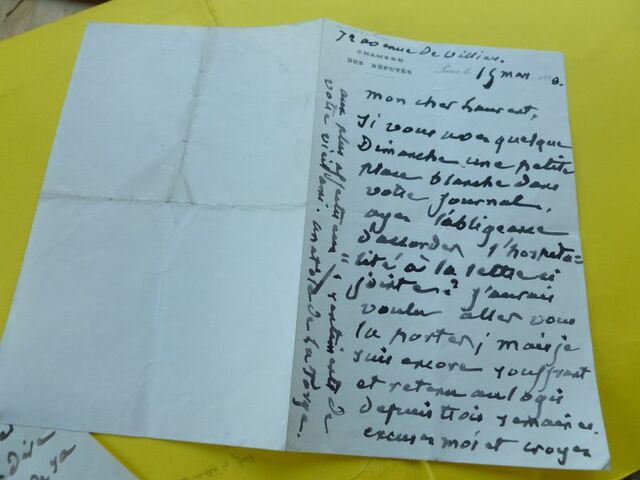 72 avenue de Villiers.
CHAMBRE
DES DÉPUTÉS
Paris, le 15 mars 188
mon cher Laurent,
si vous avez quelque
Dimanche une petite
place blanche dans
votre journal,
ayez l'obligeance
d'accorder l'hospita=
lité à la lettre ci
jointe? j'aurais
voulu aller vous
la porter; mais je
suis encore souffrant
et retenu au logis
depuis trois semaines.
excusez moi et croyez
aux plus affectueux sentiments de
votre vieil ami. anatole de la Forge.